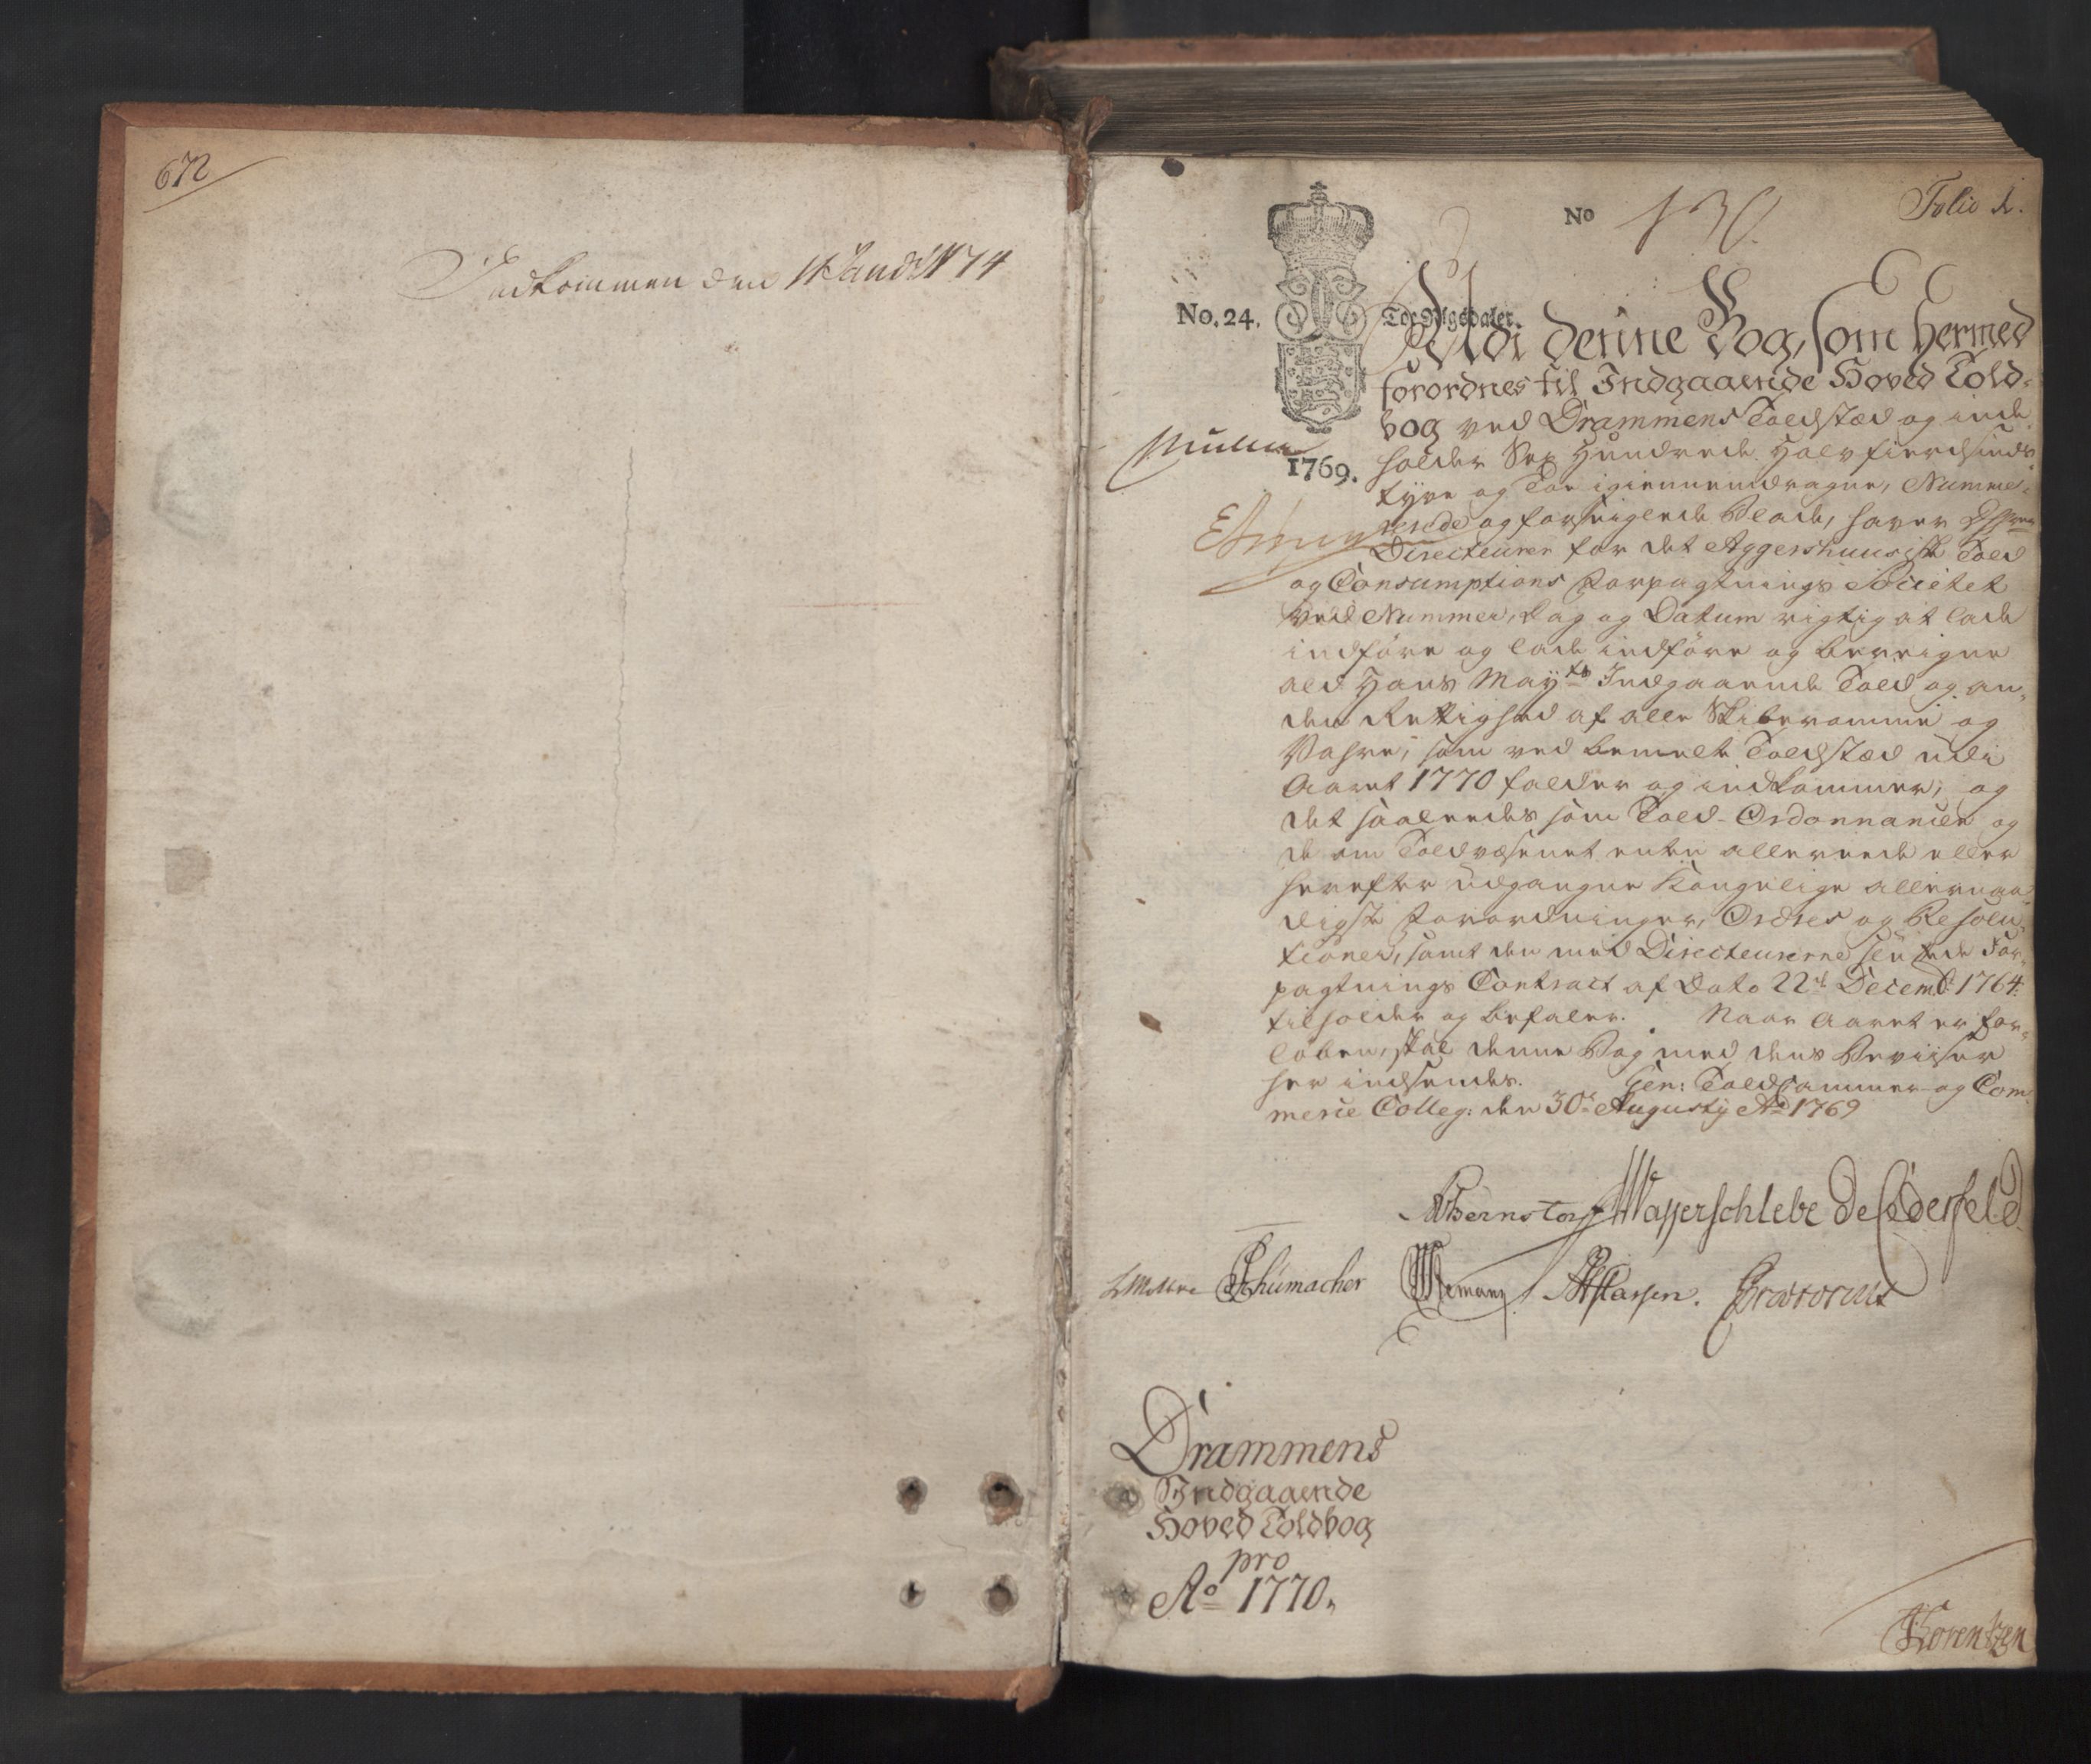 672
Indkommen den 11 Janv 1774
No 130.
Folio 1.
No. 24.
Toe Rigsdaler.
1769.
Udi denne Bog, som hermed
forordnes til Indgaaende Hoved Told-
bog ved Drammens Toldstæd og inde
holder Sex Hundrede Halvfierdsinds
tyve og Toe igiennemdragne, Numme-
rerede og forseiglede Blade, haver
Directeurer for det Aggershuusiske Told
og Consumptions Forpagtnings Societet
ved Nummer, Dag og Datum rigtig at lade
indføre og lade indføre og beregne
ald Hans Mayts Indgaaende Told og an-
den Rettighed af alle Skibsromme og
Vahre, som ved bemelte Toldstæd udi
Aaret 1770 falder og indkommer; og
det saaledes som Told-Ordonnancen og
de om Toldvæsenet enten allerede eller
herefter udgangne Kongelige allernaa-
digste Forordninger, Ordres og Resolu-
tioner, samt den med Directeurerne sluttede For-
pagtnings Contract af Dato 22de Decembr: 1764
tilholder og befaler. Naar Aaret er for-
løben, skal denne Bog med dens Beviser
her indsendes. Gen: Toldkammer og Com-
merce Colleg: den 30te Augusty Ao 1769
Bernstorff Wasserschlebe de Cederfeld
Schumacher Klemann Classen. Prætorius
Drammens
Indgaaende
Hoved Toldbog
pro
Ao 1770.
Lorentzen